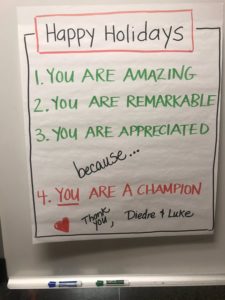 Happy Holidays
1. YOU ARE AMAZING
2. YOU ARE REMARKABLE
3. YOU ARE APPRECIATED
because...
4. YOU ARE A CHAMPION
Thank you, Diedre & Luke